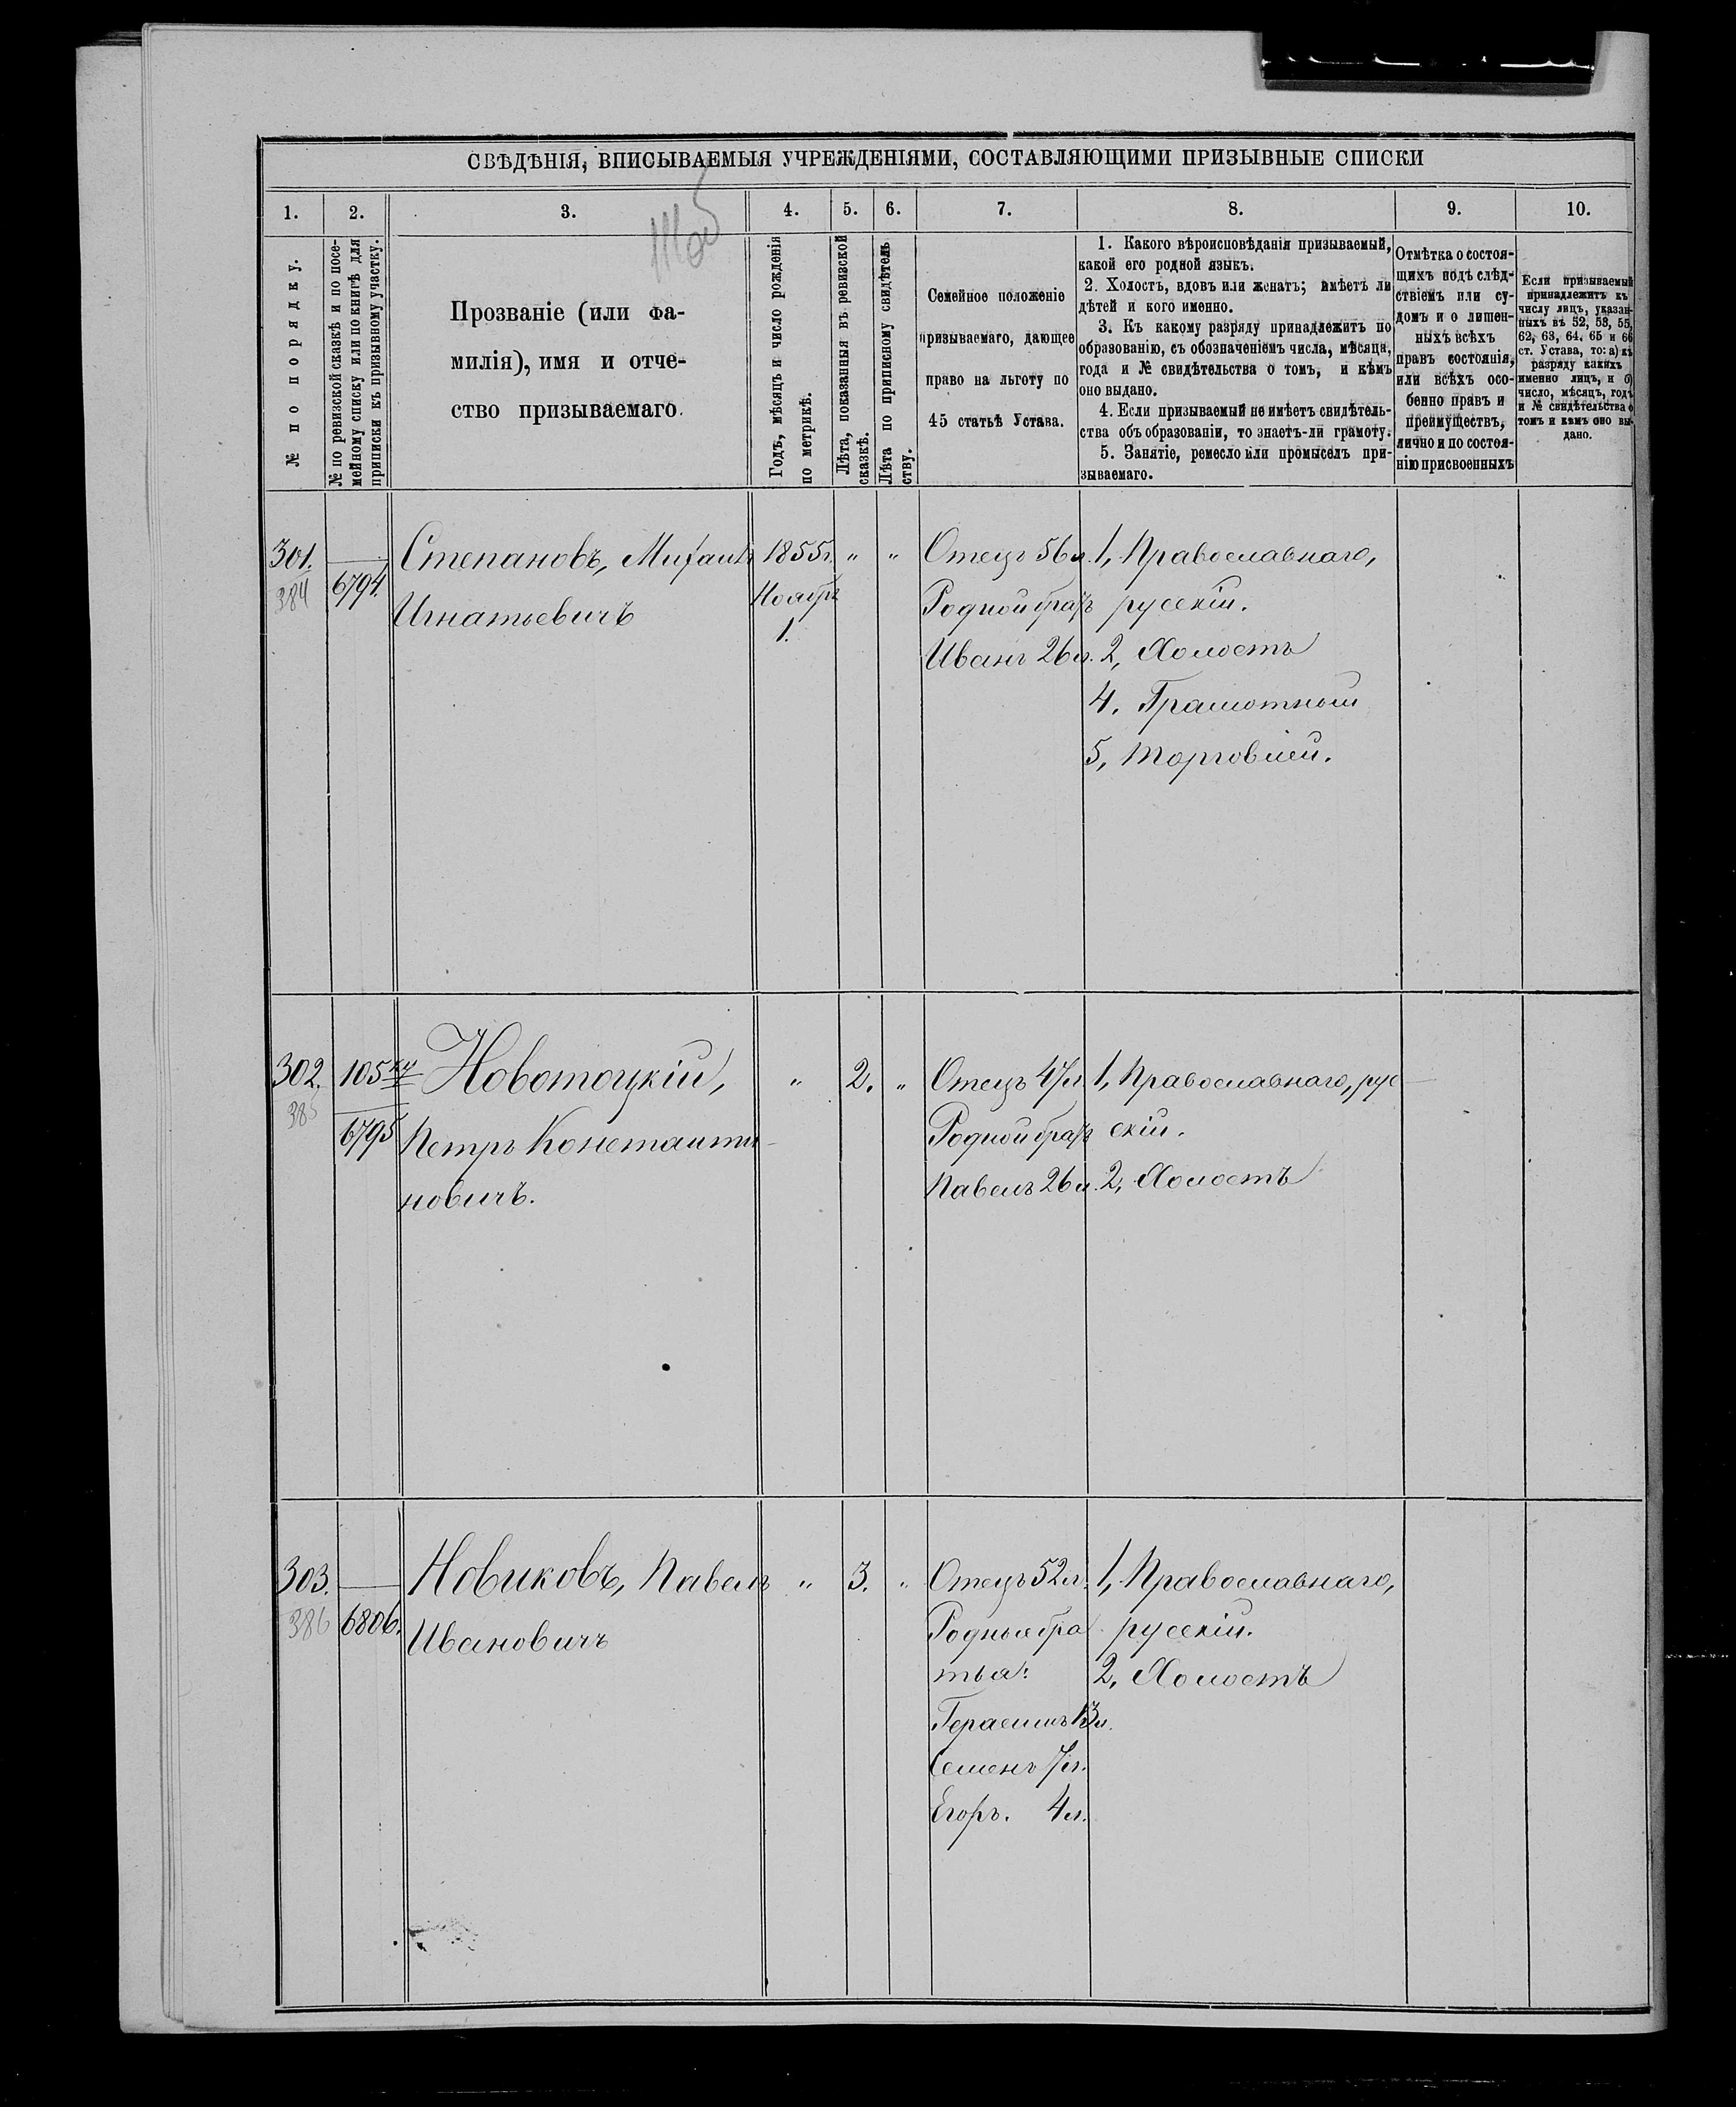 СВѢДѢНІЯ, ВПИСЫВАЕМЫЯ УЧРЕЖДЕНІЯМИ, СОСТАВЛЯЮЩИМИ ПРИЗЫВНЫЕ СПИСКИ
1.
2.
3.
4.
5.
6.
7.
8.
9.
10.
№ по порядку.
№ по ревизской сказкѣ и по посе-
мейному списку или по книгѣ для
приписки къ призывному участку.
Прозваніе (или фа-
милія), имя и отче-
ство призываемаго.
Годъ, мѣсяцъ и число рожденія
по метрикѣ.
Лѣта, показанныя въ ревизской
сказкѣ.
Лѣта по приписному свидѣтель
ству.
Семейное положеніе
призываемаго, дающее
право на льготу по
45 статьѣ Устава.
1. Какого вѣроисповѣданія призываемый,
какой его родной языкъ.
2. Холостъ, вдовъ или женатъ; имѣетъ ли
дѣтей и кого именно.
3. Къ какому разряду принадлежитъ по
образованію, съ обозначеніемъ числа, мѣсяца,
года и № свидѣтельства о томъ, и кѣмъ
оно выдано.
4. Если призываемый не имѣетъ свидѣтель-
ства объ образованіи, то знаетъ-ли грамоту.
5. Занятіе, ремесло или промыселъ при-
зываемаго.
Отмѣтка о состоя-
щихъ подъ слѣд-
ствіемъ или су-
домъ и о лишен-
ныхъ всѣхъ
правъ состоянія,
или всѣхъ осо-
бенно правъ и
преимуществъ,
лично и по состоя-
нію присвоенныхъ
Если призываемый
принадлежитъ къ
числу лицъ, указан-
ныхъ въ 52, 53, 55,
62, 63, 64, 65 и 66
ст. Устава, то: а) къ
разряду какихъ
именно лицъ, и б)
число, мѣсяцъ, годъ
и № свидѣтельства о
томъ и кѣмъ оно вы-
дано.
301.
384
6794.
Степановъ, Михаилъ
Игнатьевичъ
1855г.
Ноября
1.
" "
Отецъ 56л.
Родной братъ
Иванъ 26л.
1, Православнаго,
русскій.
2, Холостъ
4. Грамотный
5, Торговлей.
302.
385
105
6795
Новотоцкій,
Петръ Константи-
новичъ.
" 2. "
Отецъ 47л.
Родной братъ
Павелъ 26л.
1, Православнаго, рус
скій.
2, Холостъ
303.
386
6806.
Новиковъ, Павелъ
Ивановичъ
" 3. "
Отецъ 52л.
Родные бра
тья:
Герасимъ 13л.
Семенъ 7л.
Егоръ. 4л.
1, Православнаго,
русскій.
2, Холостъ